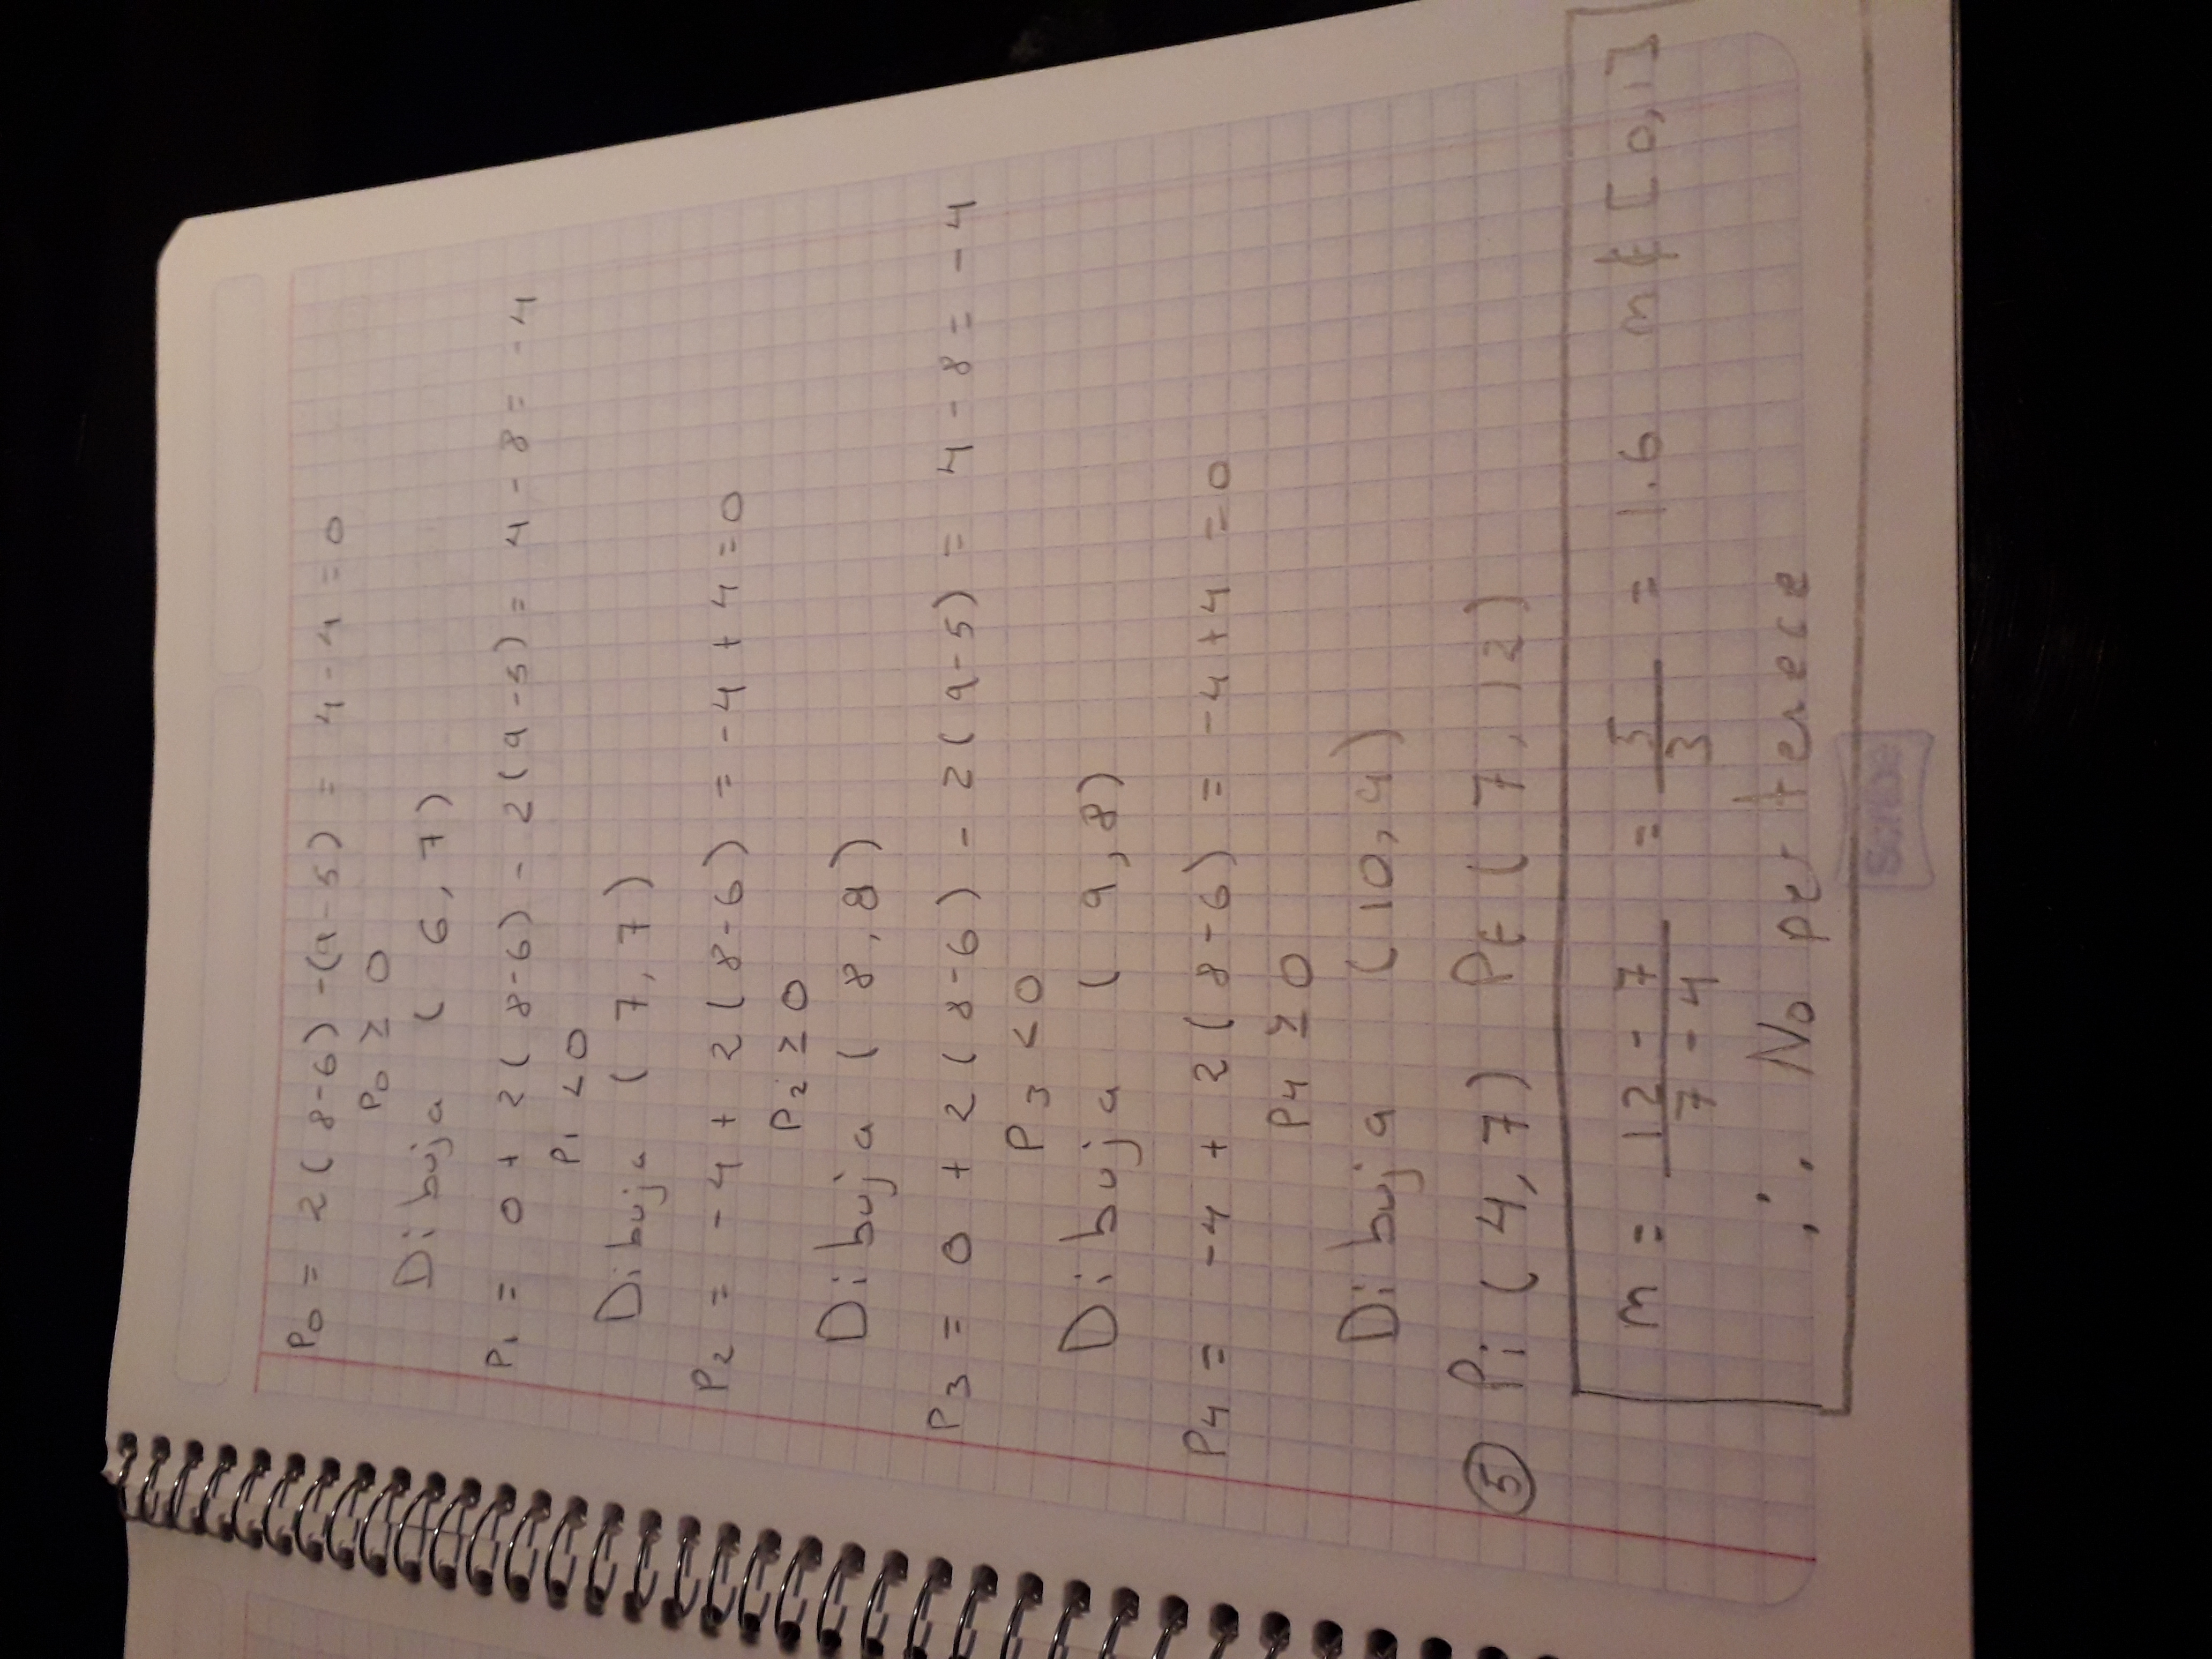 P0 = 2(8-6) -(9-5) = 4-4 = 0
P0 ≥ 0
Dibuja (6,7)
P1 = 0 + 2(8-6) - 2(9-5) = 4 - 8 = -4
P1 < 0
Dibuja (7,7)
P2 = -4 + 2(8-6) = -4 + 4 = 0
P2 ≥ 0
Dibuja (8,8)
P3 = 0 + 2(8-6) - 2(9-5) = 4 - 8 = -4
P3 < 0
Dibuja (9,8)
P4 = -4 + 2(8-6) = -4+4 = 0
P4 ≥ 0
Dibuja (10,9)
⑤ Pi (4,7) Pf (7,12)
m = 12-7 / 7-4 = 5/3 = 1.6 m ∉ [0,1]
∴ No pertenece
Scribe